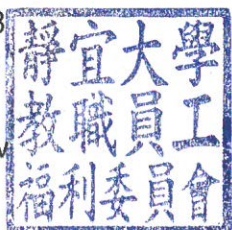 靜宜大學
教職員工
福利委員會